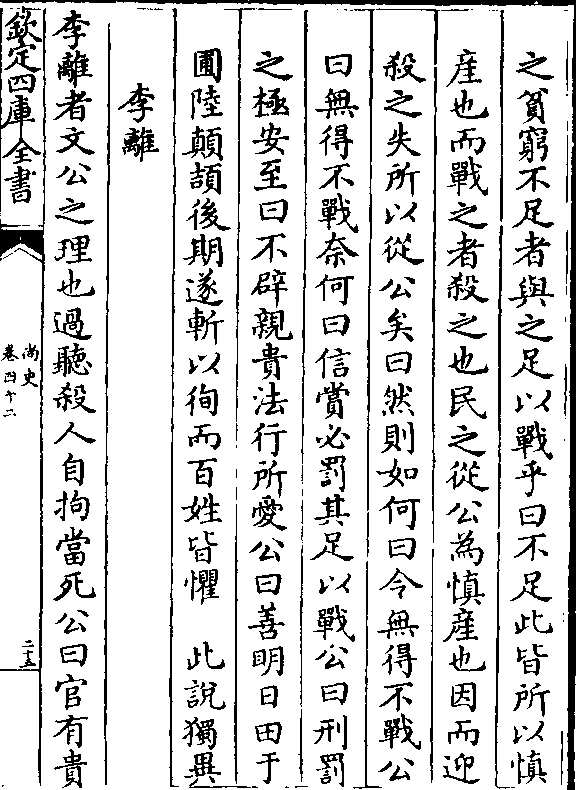 之貧窮不足者與之足以戰乎曰不足此皆所以慎
産也而戰之者殺之也民之從公為慎産也因而迎
殺之失所以從公矣曰然則如何曰令無得不戰公
曰無得不戰奈何曰信賞必罰其足以戰公曰刑罰
之極安至曰不辟親貴法行所愛公曰善明日田于
圃陸顛頡後期遂斬以徇而百姓皆懼　此說獨異
李離
李離者文公之理也過聽殺人自拘當死公曰官有貴
欽定四庫全書
尚史
卷四十二
二十五